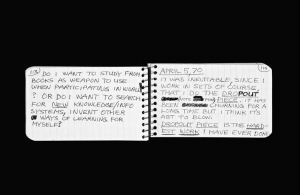 DO I WANT TO STUDY FROM
BOOKS AS WEAPON TO USE
WHEN PARTICIPATING IN WORLD
? OR DO I WANT TO SEARCH
FOR NEW KNOWLEDGE/INFO
SYSTEMS, INVENT OTHER
WAYS OF LEARNING FOR
MYSELF?
APRIL 5, 70
IT WAS INEVITABLE, SINCE I
WORK IN SETS OF COURSE,
THAT I DO THE DROPOUT
PIECE. IT HAS
BEEN CHURNING FOR A
LONG TIME BUT I THINK IT'S
ABT TO BLOW.
DROPOUT PIECE IS THE HARD-
EST WORK I HAVE EVER DONE